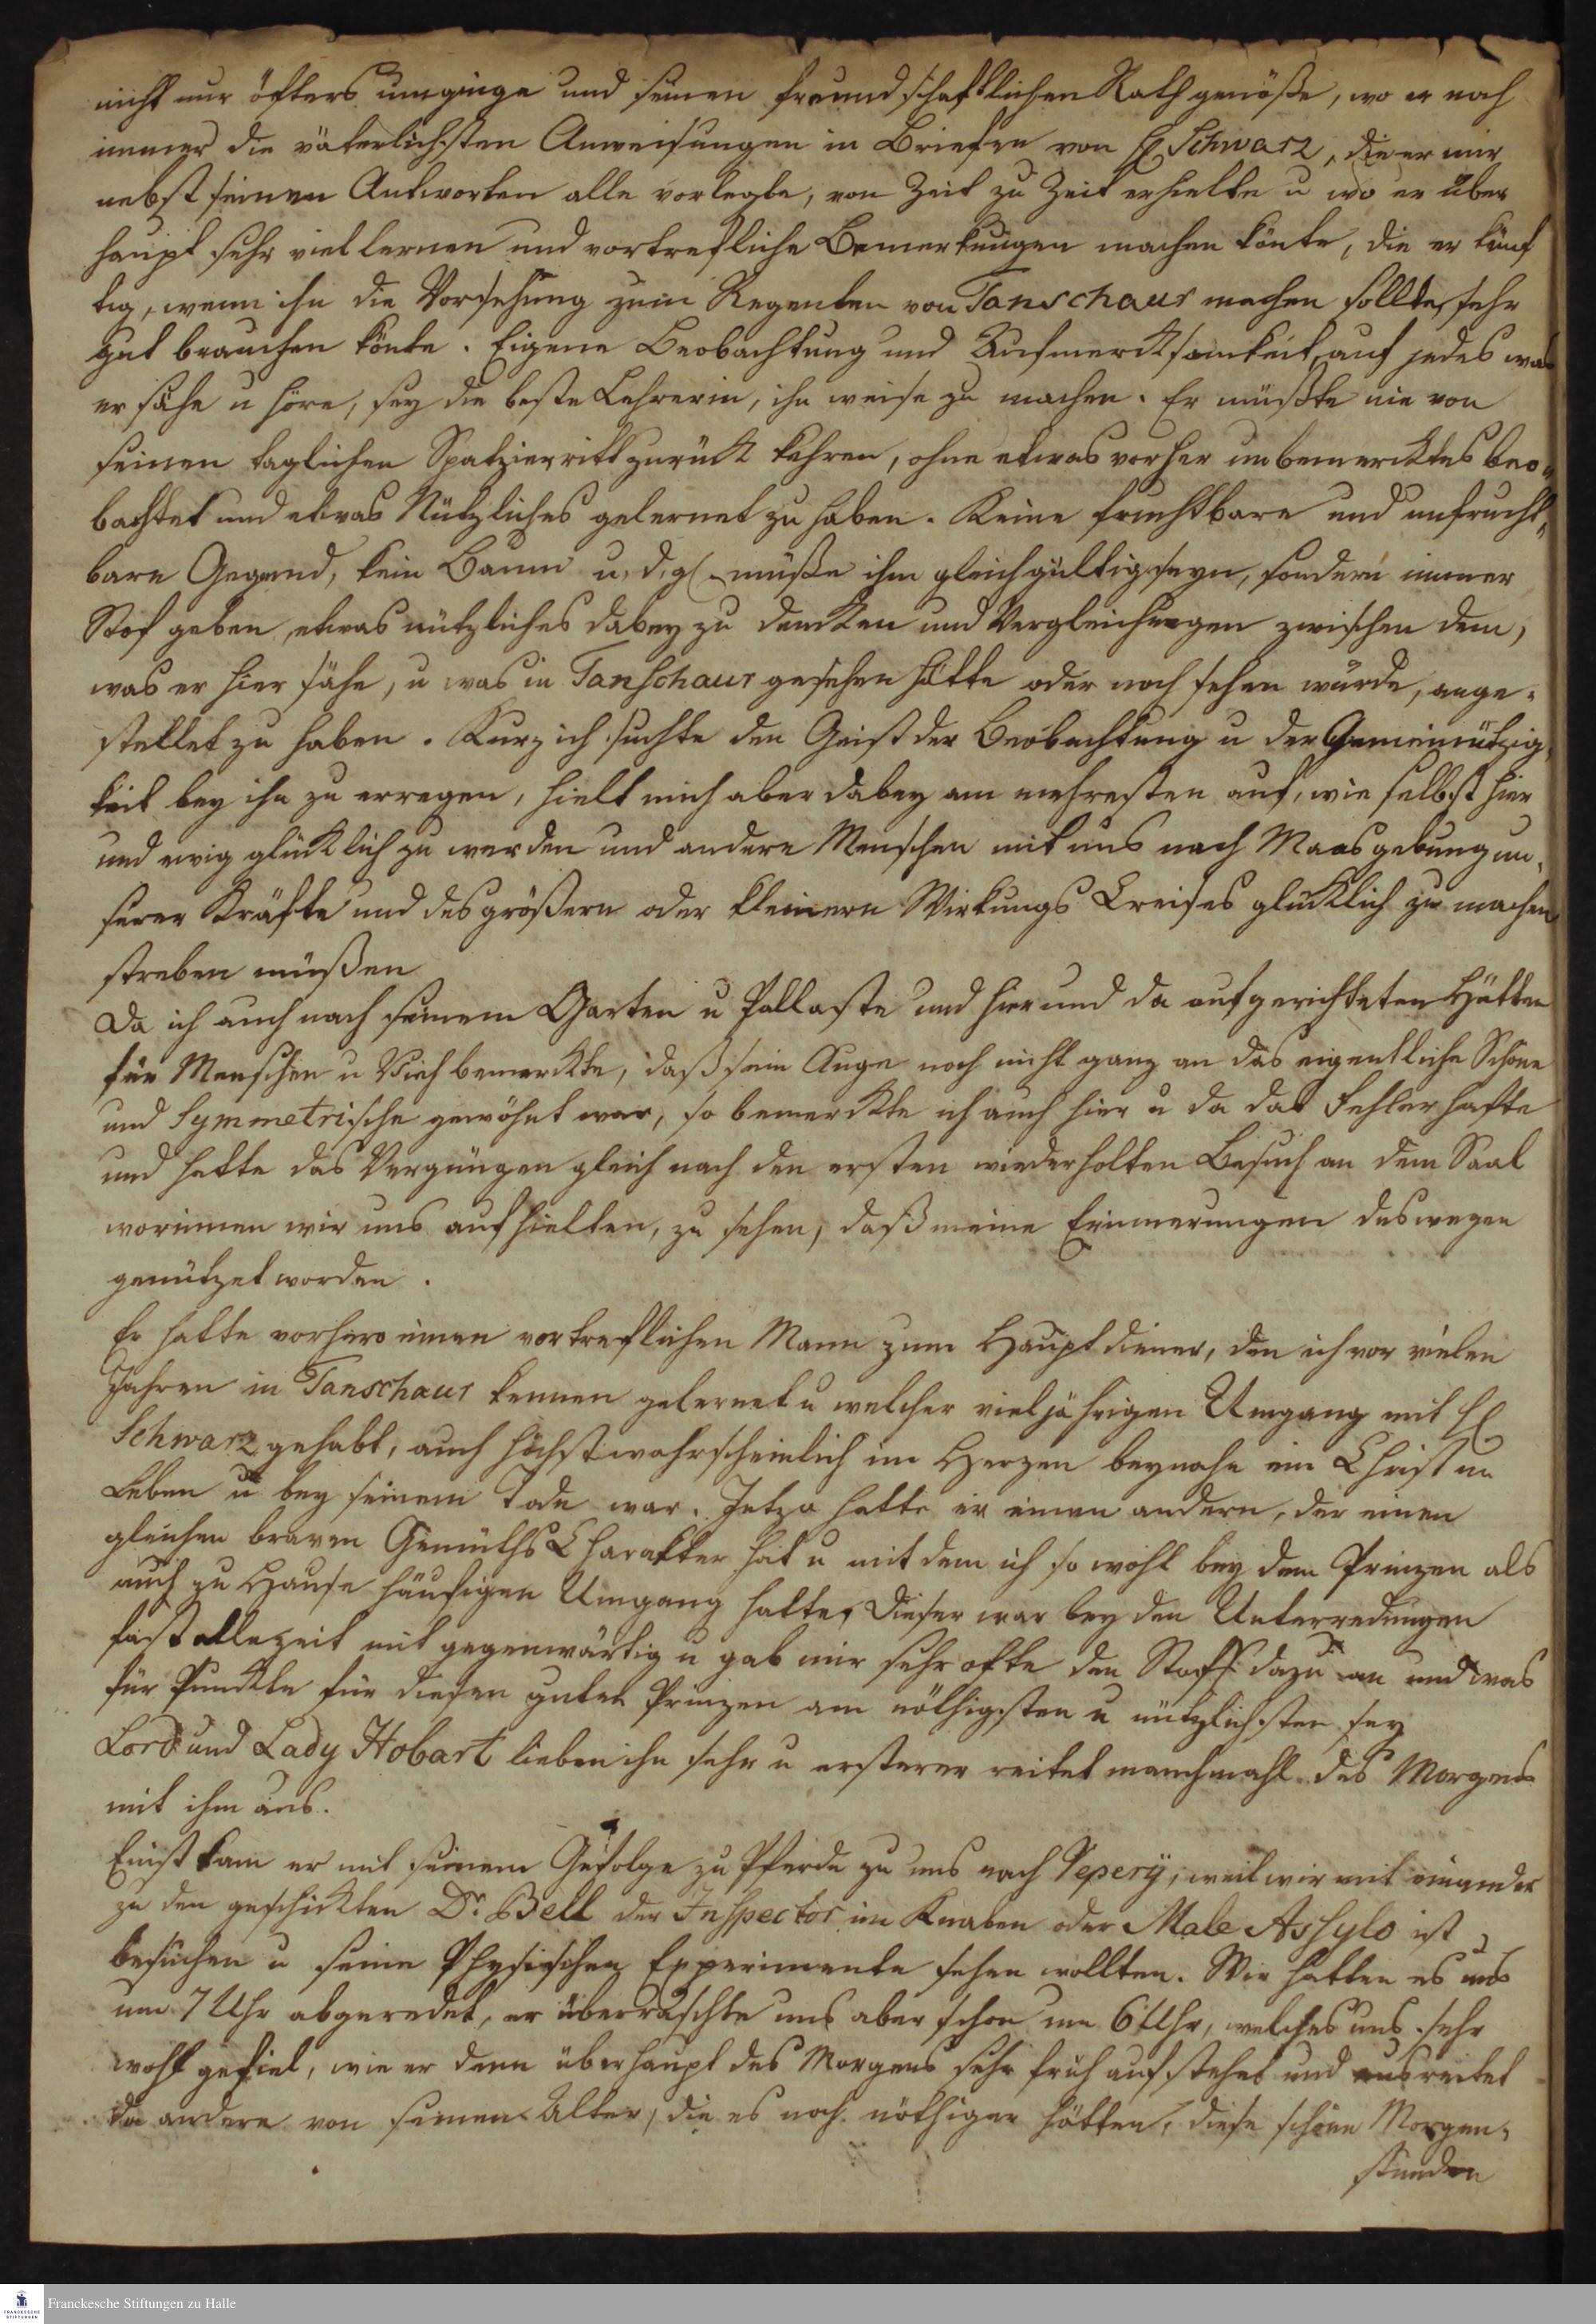 nicht nur öfters umginge und seinen freundschaftlichen Rath genöße, wo er noch
immer die väterlichsten Anweisungen in Briefen von H Schwarz, die er mir
nebst seinen Antworten alle vorlegte, von Zeit zu Zeit erhielte u wo er über
haupt sehr viel lernen und vortrefliche Bemerkungen machen könte, die er künf
tig, wenn ihn die Vorsehung zum Regenten von Tanschaur machen sollte, sehr
gut brauchen könte. Eigene Beobachtung und Aufmercksamkeit auf jedes was
er sähe u höre, sey die beste Lehrerin, ihn weise zu machen. Er müßte nie von
seinen taglichen Spatzierritt zurück kehren, ohne etwas vorher unbemercktes beo=
bachtet und etwas Nützliches gelernet zu haben. Keine fruchtbare und unfrucht=
bare Gegend, kein Baum u. d. gl. müße ihm gleichgültig seyn, sondern immer
Stof geben etwas nützliches dabey zu dencken und Vergleichungen zwischen dem,
was er hier sähe, u was in Tanschaur gesehen hätte oder noch sehen würde, ange=
stellet zu haben. Kurz ich suchte den Geist der Beobachtung u der Gemeinnützig=
keit bey ihn zu erregen, hielt mich aber dabey am mehresten auf, wie selbst hier
und ewig glücklich zu werden und andere Menschen mit uns nach Maasgebung un=
serer Kräfte und des größern oder kleinern Wirkungs Creises glücklich zu machen
streben müßen
Da ich auch nach seinem Garten u Pallaste und hier und da aufgerichteten Hütten
für Menschen u Vieh bemerckte, daß sein Auge noch nicht ganz an das eigentliche Schöne
und Symmetrische gewöhnt war, so bemerckte ich auch hier u da das Fehlerhafte
und hatte das Vergnügen gleich nach den ersten wiederholten Besuch an dem Saal
worinnen wir uns aufhielten, zu sehen, daß meine Erinnerungen deswegen
genützet worden.
Er hatte vorhero einen vortreflichen Mann zum Hauptdiener, den ich vor vielen
Jahren in Tanschaur kennen gelernet u welcher vieljährigen Umgang mit H
Schwarz gehabt, auch höchstwahrscheinlich im Herzen beynahe ein Christ im
Leben u bey seinem Tode war. Jetzo hatte er einen andern, der einen
gleichen braven GemüthsCharakter hat u mit dem ich so wohl bey dem Prinzen als
auch zu Hause häufigen Umgang hatte, dieser war bey den Unterredungen
fast allezeit mit gegenwärtig u gab mir sehr ofte den Stoff dazu an und was
für Punckte für diesen guten Prinzen am nöthigsten u nützlichsten sey
Lord und Lady Hobart lieben ihn sehr u ersterer reitet manchmahl des Morgens
mit ihm aus.
Einst kam er mit seinem Gefolge zu Pferde zu uns nach Vepery, weil wir mit einander
zu den geschickten Dr. Bell der Inspector im Knaben oder Male Assylo ist
besuchen u seine Physischen Experimente sehen wollten. Wir hatten es uns
um 7 Uhr abgeredet, er überraschte uns aber schon um 6 Uhr, welches uns sehr
wohl gefiel, wie er denn überhaupt des Morgens sehr früh aufstehet und ausreitet
da andere von seinem Alter, die es noch nöthiger hätten, diese schöne Morgen=
stunden
Franckesche Stiftungen zu Halle